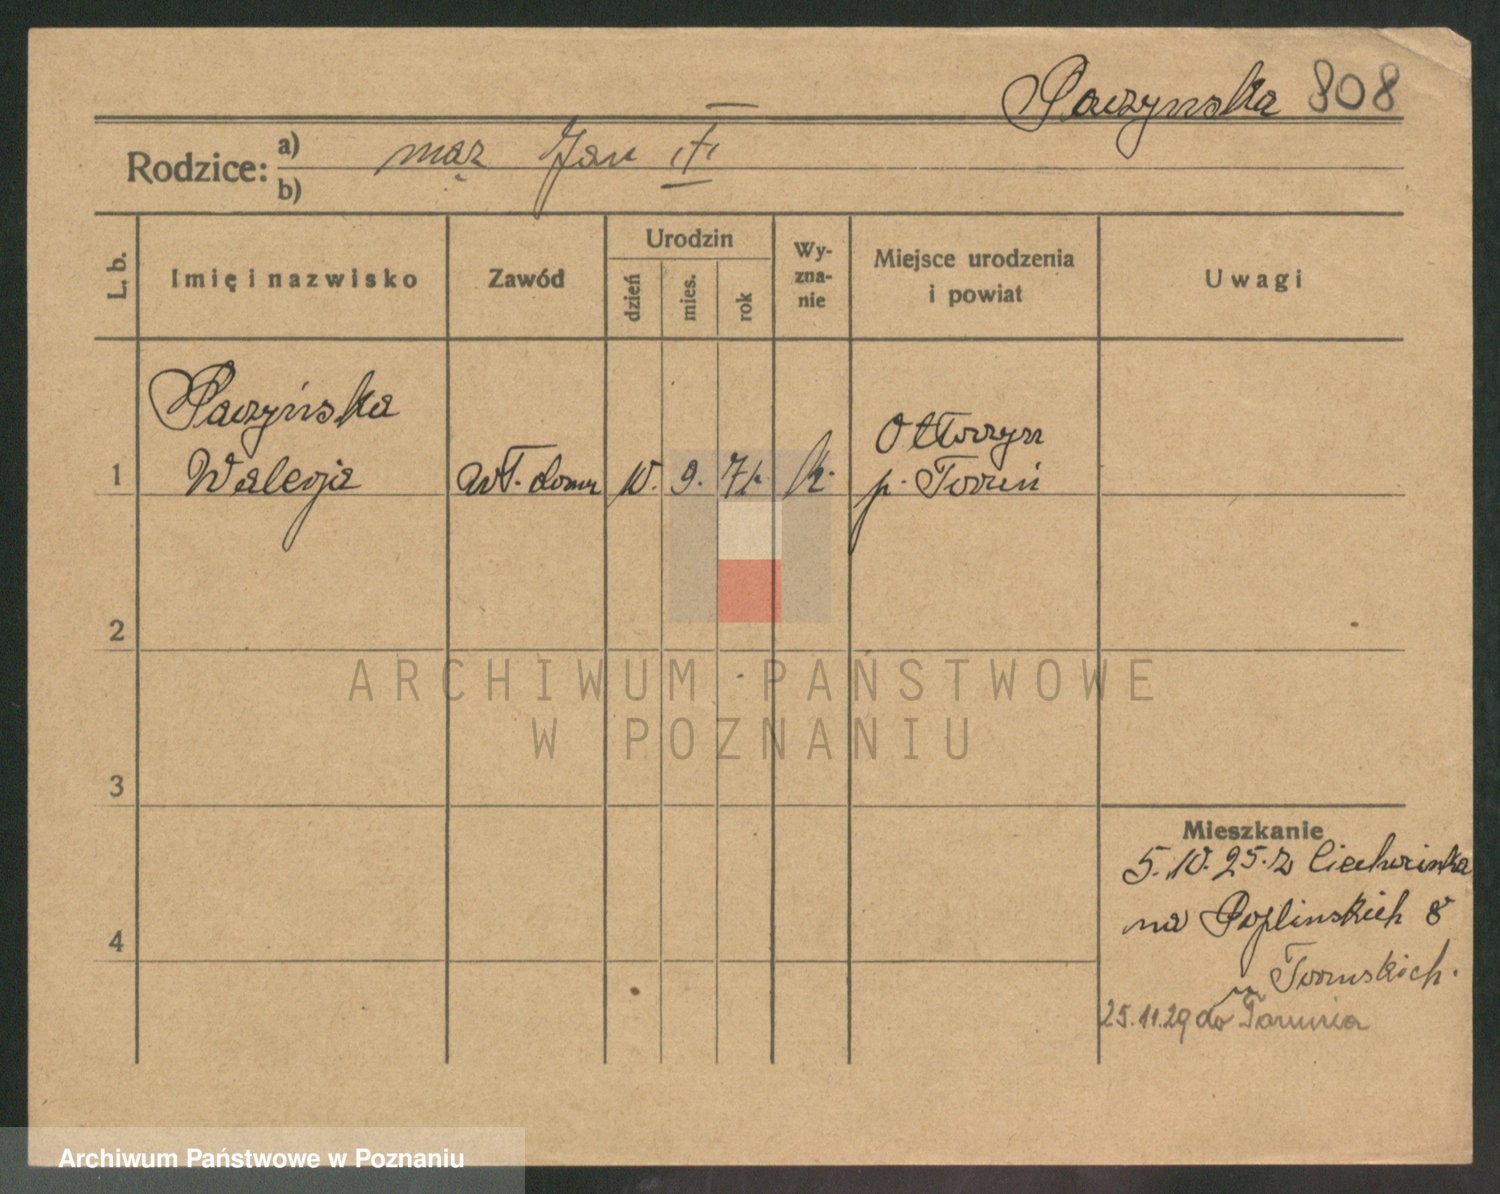 Paczynska 808
Rodzice:
a) mąż Jan
b)
L. b.
Imię i nazwisko
Zawód
Urodzin
dzień
mies.
rok
Wy-
zna-
nie
Miejsce urodzenia
i powiat
Uwagi
Paczyńska
Walerja
1
wł. domu
10.
9.
71.
k.
Otłoczyn
p. Toruń
2
3
4
Mieszkanie
5.10.25. z Ciechocinka
na Poplinskich 8
u Toruńskich.
25.11.29 do Torunia
ARCHIWUM PAŃSTWOWE
W POZNANIU
Archiwum Państwowe w Poznaniu